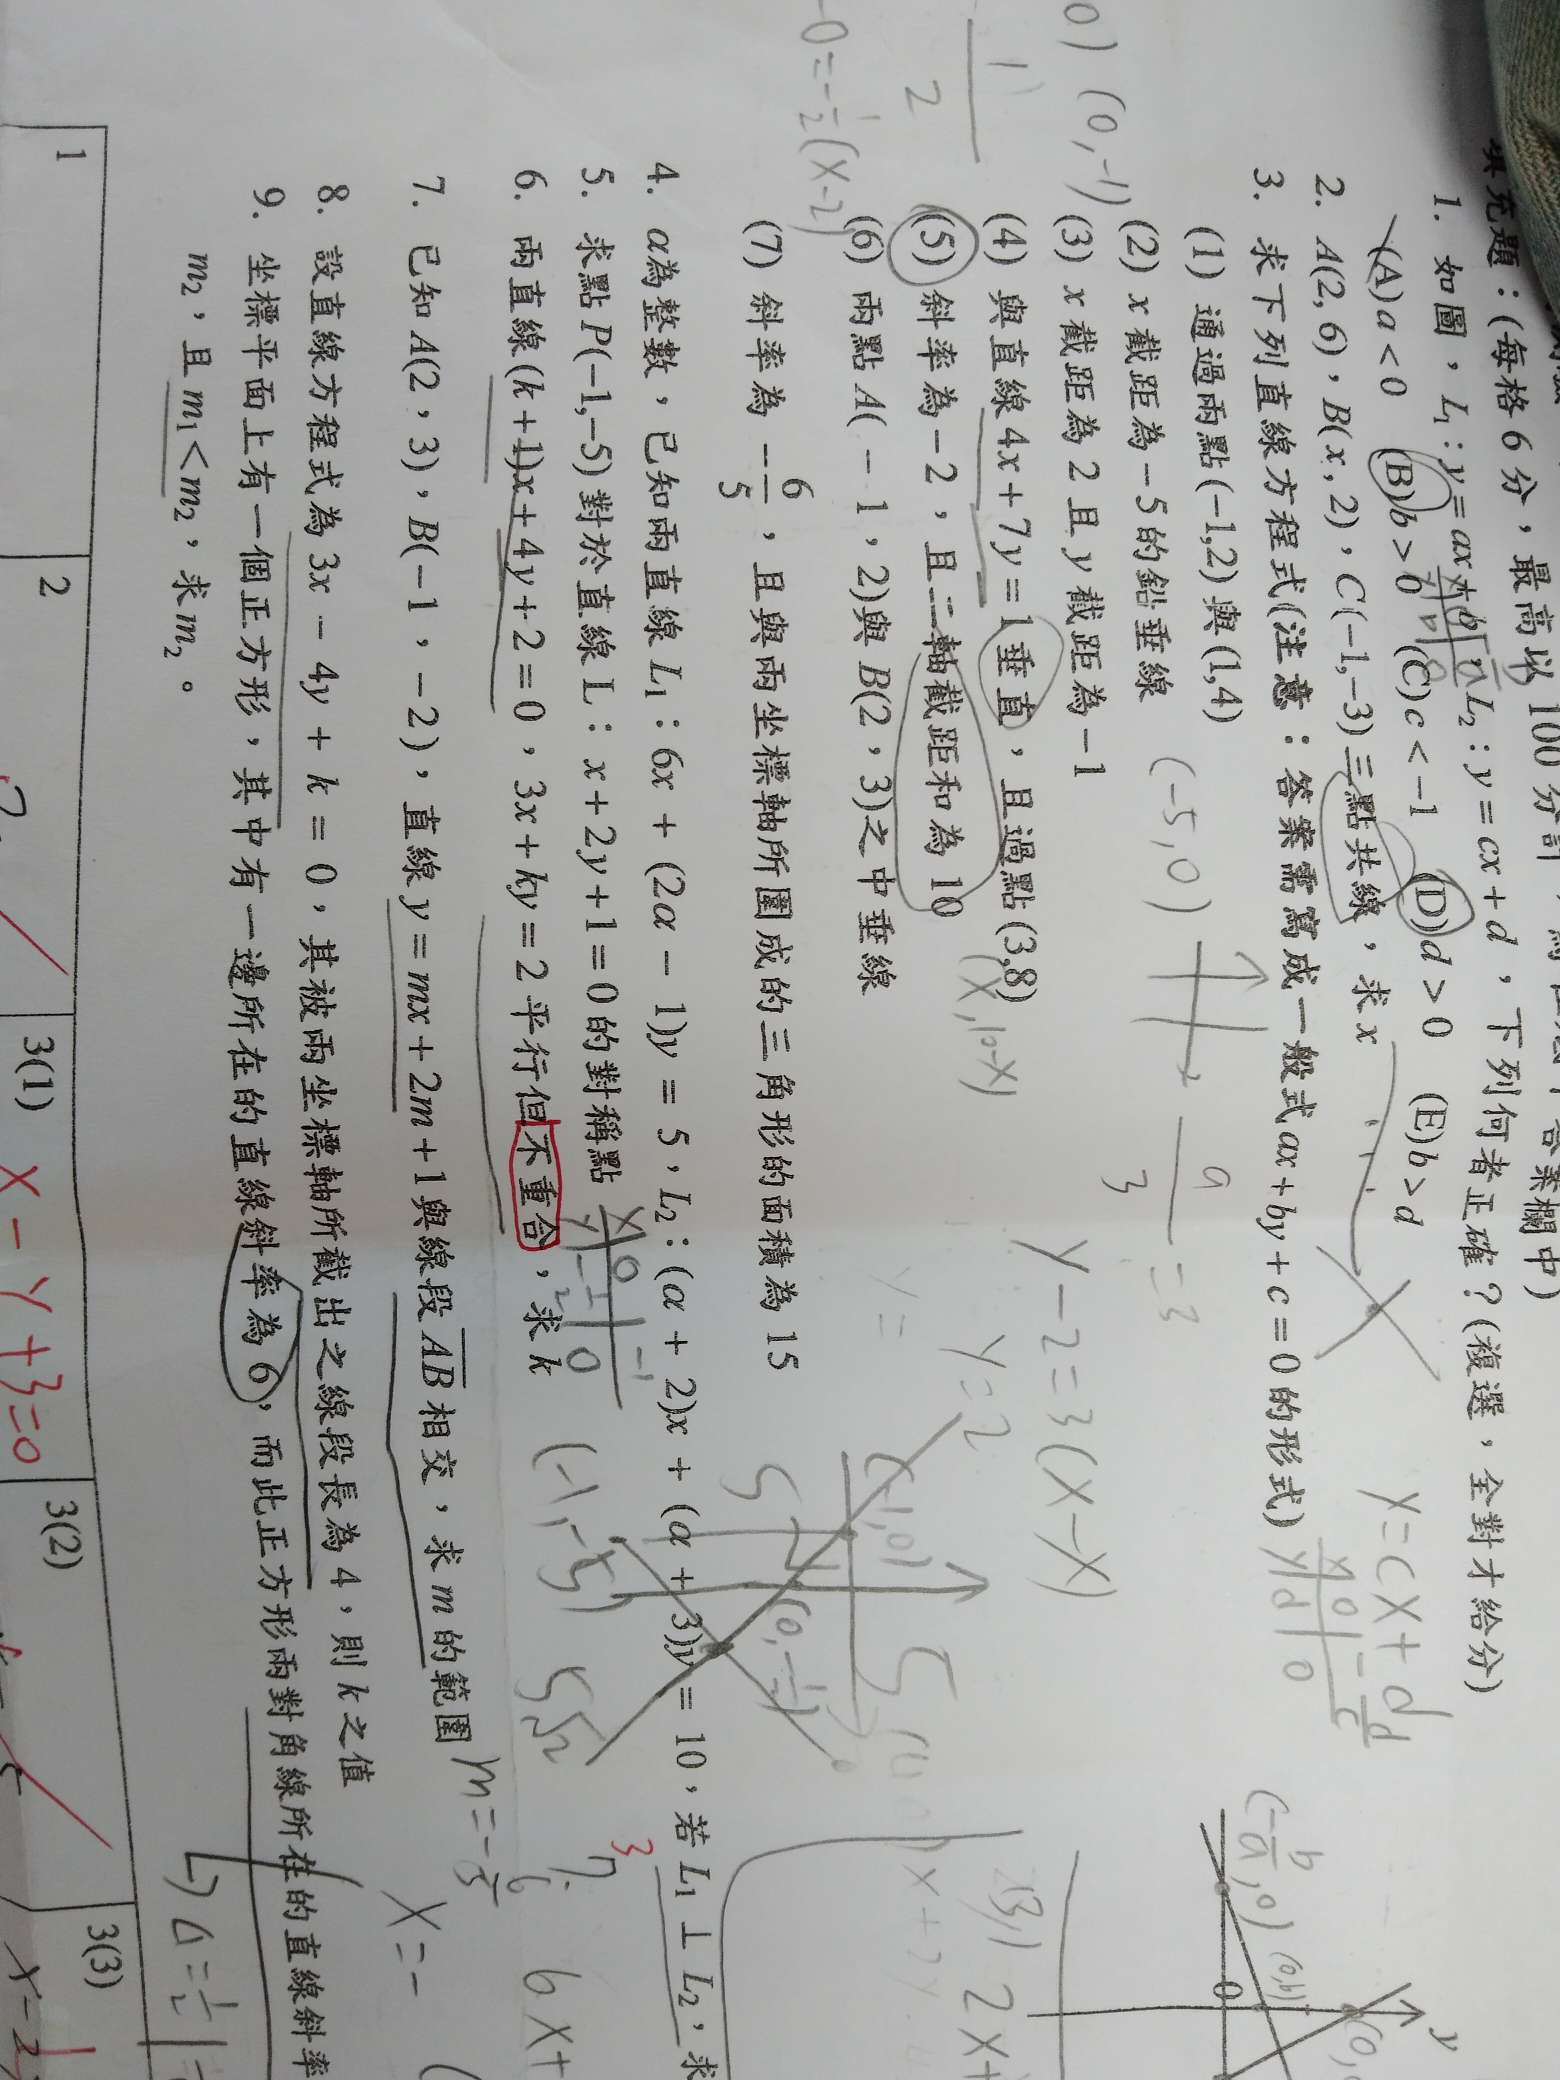 填充題：(每格6分，最高以100分計
答案欄中)
1. 如圖，L₁：y=ax+b，L₂：y=cx+d，下列何者正確？(複選，全對才給分)
(A)a<0 (B)b>0 (C)c<-1 (D)d>0 (E)b>d
2. A(2,6)，B(x,2)，C(-1,-3)三點共線，求x
3. 求下列直線方程式(注意：答案需寫成一般式ax+by+c=0的形式)
(1) 通過兩點(-1,2)與(1,4)
(2) x截距為-5的鉛垂線
(3) x截距為2且y截距為-1
(4) 與直線4x+7y=1垂直，且過點(3,8)
(5) 斜率為-2，且二軸截距和為10
(6) 兩點A(-1，2)與B(2，3)之中垂線
(7) 斜率為-6/5，且與兩坐標軸所圍成的三角形的面積為15
4. α為整數，已知兩直線L₁：6x+(2α-1)y=5，L₂：(α+2)x+(α+3)y=10，若L₁⊥L₂，求
5. 求點P(-1,-5)對於直線L：x+2y+1=0的對稱點
6. 兩直線(k+1)x+4y+2=0，3x+ky=2平行但不重合，求k
7. 已知A(2，3)，B(-1，-2)，直線y=mx+2m+1與線段AB相交，求m的範圍
8. 設直線方程式為3x-4y+k=0，其被兩坐標軸所截出之線段長為4，則k之值
9. 坐標平面上有一個正方形，其中有一邊所在的直線斜率為6，而此正方形兩對角線所在的直線斜率
m₂，且m₁<m₂，求m₂。
1 2 3(1) 3(2) 3(3)
x-y+3=0
(0,-1)
(-5,0)
(x,10-x)
y-2=3(x-x)
y=2
y=cx+d
(-1,0)
(-1,-5)
(0,b)
y
0